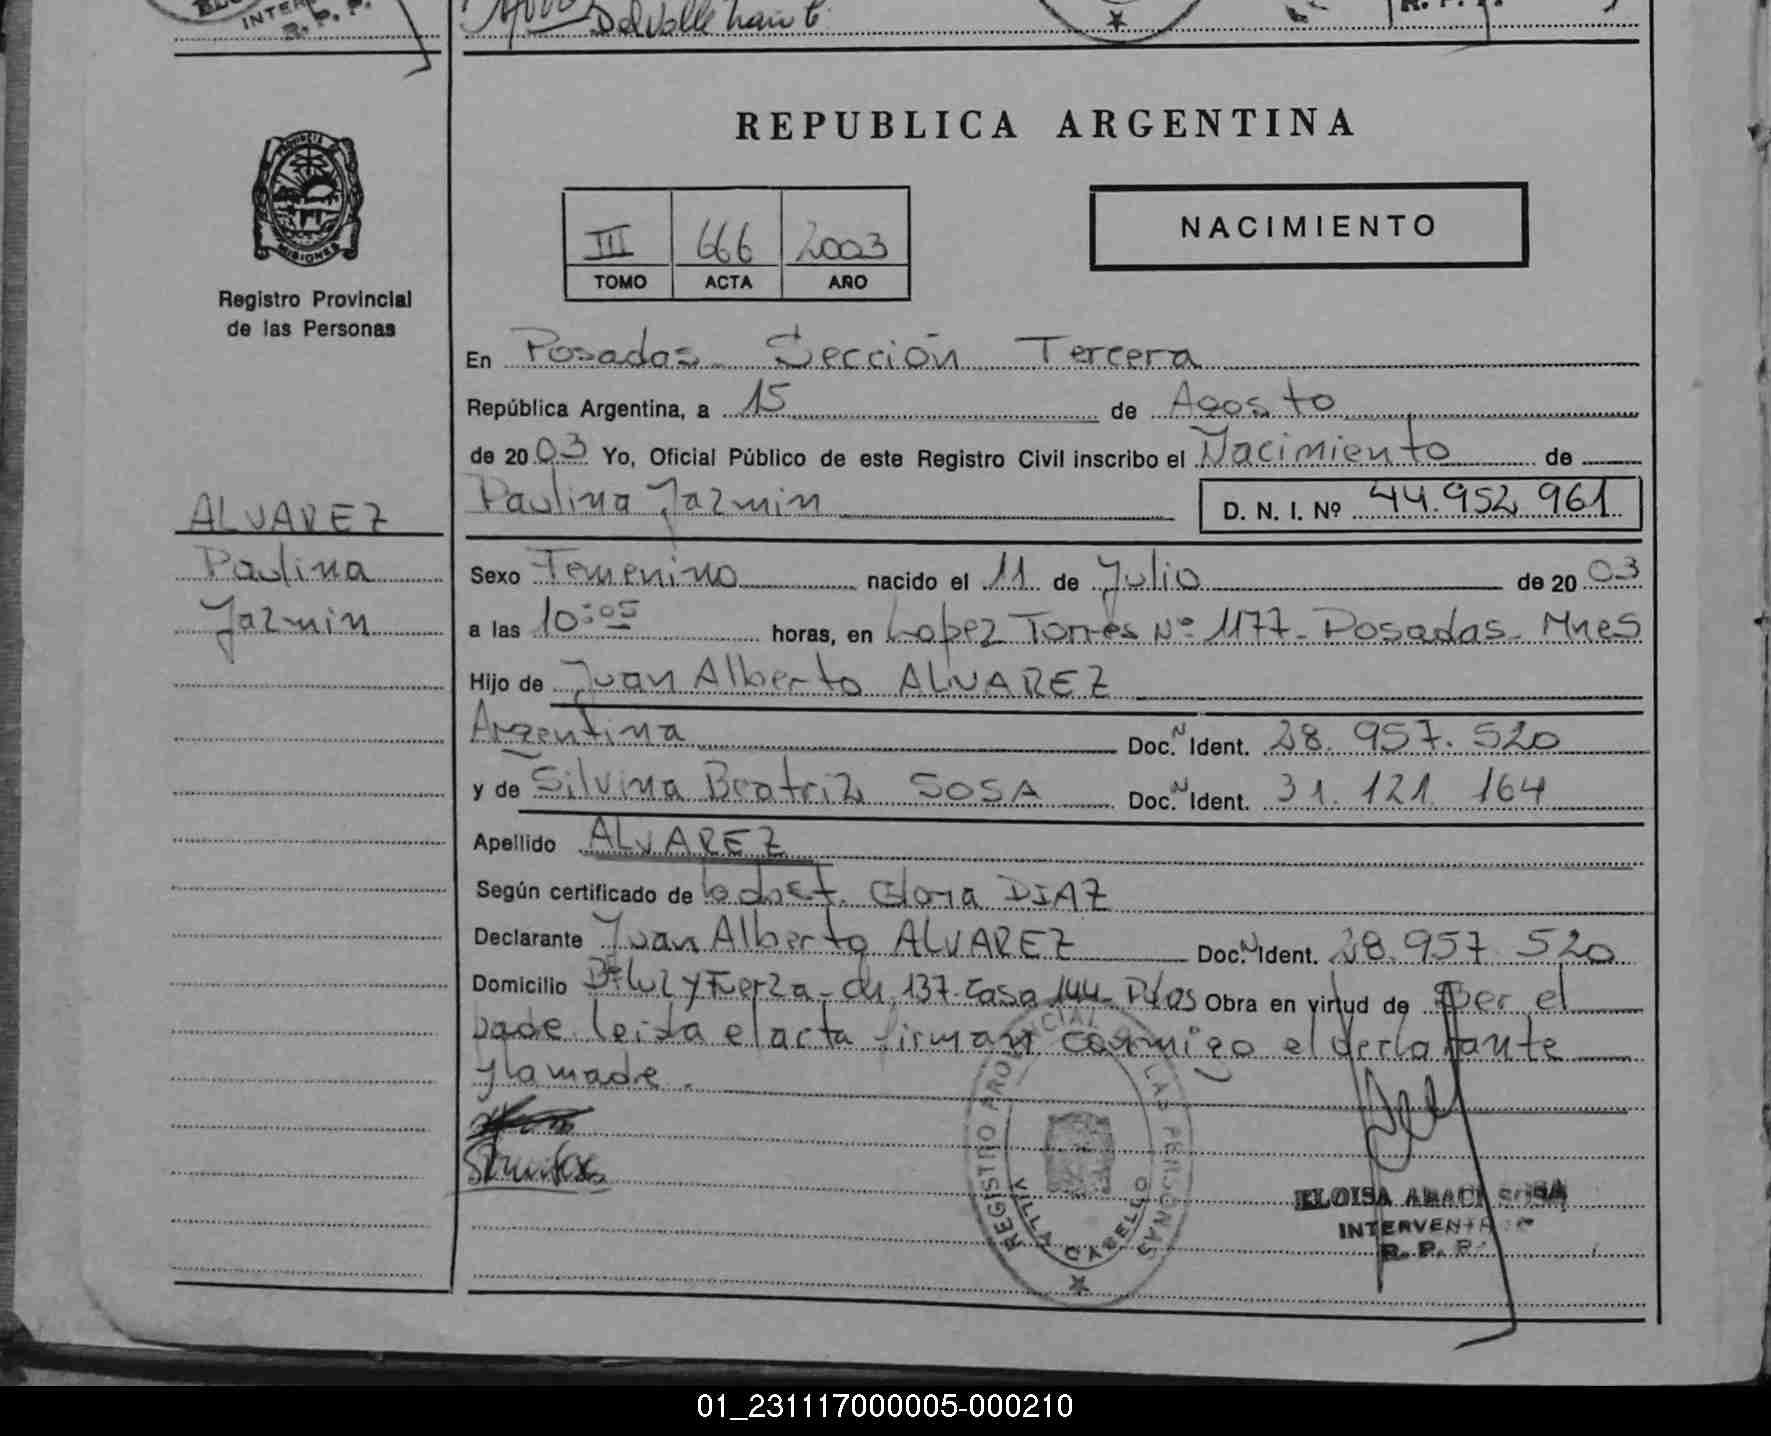 INTER
R. P. P.
Del Valle
REPUBLICA ARGENTINA
PROVINCIA
MISIONES
III 666 2003
TOMO ACTA AÑO
NACIMIENTO
Registro Provincial
de las Personas
En Posadas Sección Tercera
República Argentina, a 15 de Agosto
de 2003 Yo, Oficial Público de este Registro Civil inscribo el Nacimiento de
Paulina Jazmin D. N. I. Nº 44.952 961
ALVAREZ
Paulina
Jazmin
Sexo Femenino nacido el 11 de Julio de 2003
a las 10:05 horas, en Lopez Torres Nº 1177 - Posadas - Mnes
Hijo de Juan Alberto ALVAREZ
Argentina Doc.N Ident. 28. 957. 520
y de Silvina Beatriz SOSA Doc.N Ident. 31. 121 164
Apellido ALVAREZ
Según certificado de Gloria DIAZ
Declarante Juan Alberto ALVAREZ Doc.N Ident. 28. 957. 520
Domicilio Bº Luz y Fuerza - Ch. 137 - Casa 144 - Pdas Obra en virtud de Ser el
leida el acta firman conmigo el declarante
y la madre.
REGISTRO PROVINCIAL DE LAS PERSONAS
VILLA CABELLO
ELOISA SOSA
INTERVENTORA
R. P. P.
01_231117000005-000210